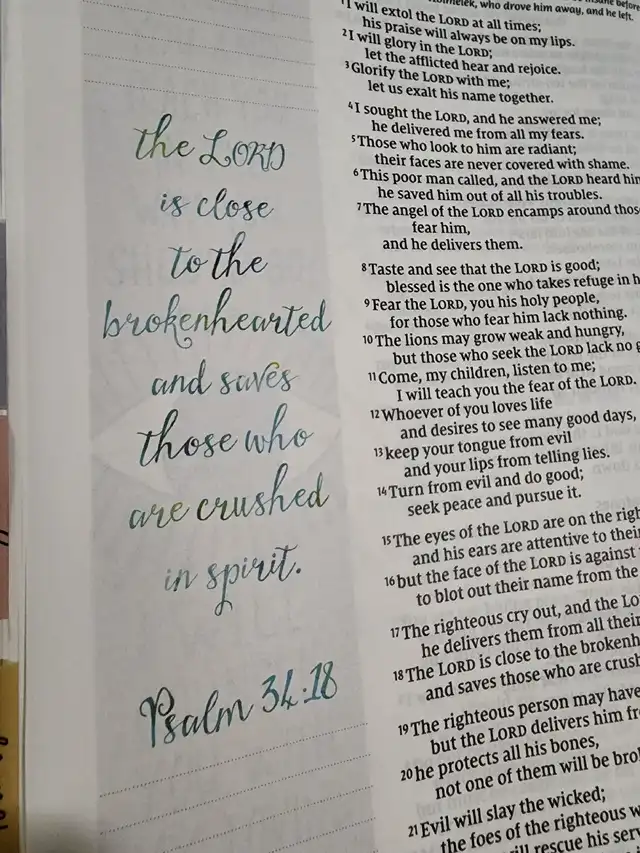 the LORD
is close
to the
brokenhearted
and saves
those who
are crushed
in spirit.
Psalm 34:18
who drove him away, and he left.
1I will extol the LORD at all times;
his praise will always be on my lips.
2I will glory in the LORD;
let the afflicted hear and rejoice.
3Glorify the LORD with me;
let us exalt his name together.
4I sought the LORD, and he answered me;
he delivered me from all my fears.
5Those who look to him are radiant;
their faces are never covered with shame.
6This poor man called, and the LORD heard him
he saved him out of all his troubles.
7The angel of the LORD encamps around
fear him,
and he delivers them.
8Taste and see that the LORD is good;
blessed is the one who takes refuge in
9Fear the LORD, you his holy people,
for those who fear him lack nothing.
10The lions may grow weak and hungry,
but those who seek the LORD lack no
11Come, my children, listen to me;
I will teach you the fear of the LORD.
12Whoever of you loves life
and desires to see many good days,
13keep your tongue from evil
and your lips from telling lies.
14Turn from evil and do good;
seek peace and pursue it.
15The eyes of the LORD are on the
and his ears are attentive to
16but the face of the LORD is against
to blot out their name from the
17The righteous cry out, and the
he delivers them from all their
18The LORD is close to the
and saves those who are
19The righteous person may have
but the LORD delivers him
20he protects all his bones,
not one of them will be
21Evil will slay the wicked;
the foes of the righteous
rescue his